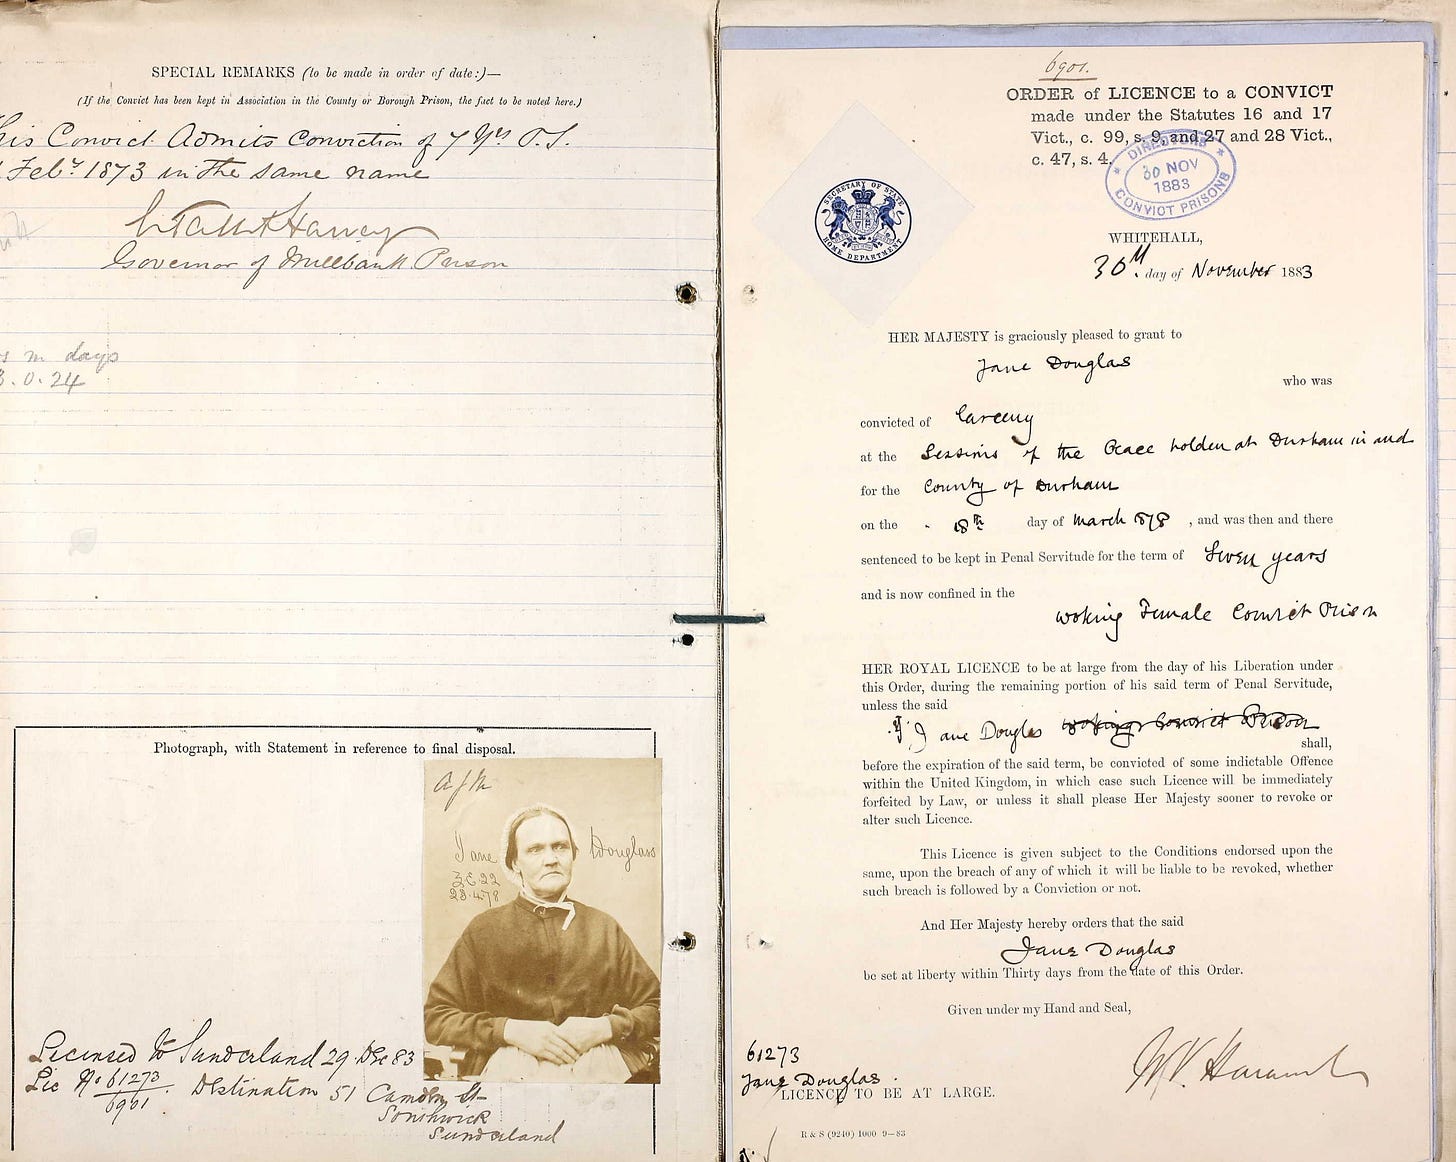 SPECIAL REMARKS (to be made in order of date:)—
(If the Convict has been kept in Association in the County or Borough Prison, the fact to be noted here.)
his Convict Admits Conviction of 7 Yrs P.S.
Feby 1873 in the same name
Harvey
Governor of Millbank Prison
s m days
3.0.24
Photograph, with Statement in reference to final disposal.
Jane Douglass
23.4.78
Licensed to Sunderland 29 Dec 83
Lic No 61273
6901
Destination 51 Camden St
Southwick
Sunderland
6901.
ORDER of LICENCE to a CONVICT
made under the Statutes 16 and 17
Vict., c. 99, s. 9, and 27 and 28 Vict.,
c. 47, s. 4.
DIRECTORS
30 NOV
1883
CONVICT PRISONS
SECRETARY OF STATE
HOME DEPARTMENT
WHITEHALL,
30th day of November 1883
HER MAJESTY is graciously pleased to grant to
Jane Douglas
who was
convicted of Larceny
at the Sessions of the Peace holden at Durham in and
for the County of Durham
on the 18th day of March 1878, and was then and there
sentenced to be kept in Penal Servitude for the term of Seven years
and is now confined in the
Woking Female Convict Prison
HER ROYAL LICENCE to be at large from the day of his Liberation under
this Order, during the remaining portion of his said term of Penal Servitude,
unless the said
Jane Douglas Woking Convict Prison
shall,
before the expiration of the said term, be convicted of some indictable Offence
within the United Kingdom, in which case such Licence will be immediately
forfeited by Law, or unless it shall please Her Majesty sooner to revoke or
alter such Licence.
This Licence is given subject to the Conditions endorsed upon the
same, upon the breach of any of which it will be liable to be revoked, whether
such breach is followed by a Conviction or not.
And Her Majesty hereby orders that the said
Jane Douglas
be set at liberty within Thirty days from the date of this Order.
Given under my Hand and Seal,
61273
Jane Douglas.
LICENCE TO BE AT LARGE.
R & S (9240) 1000 9—83